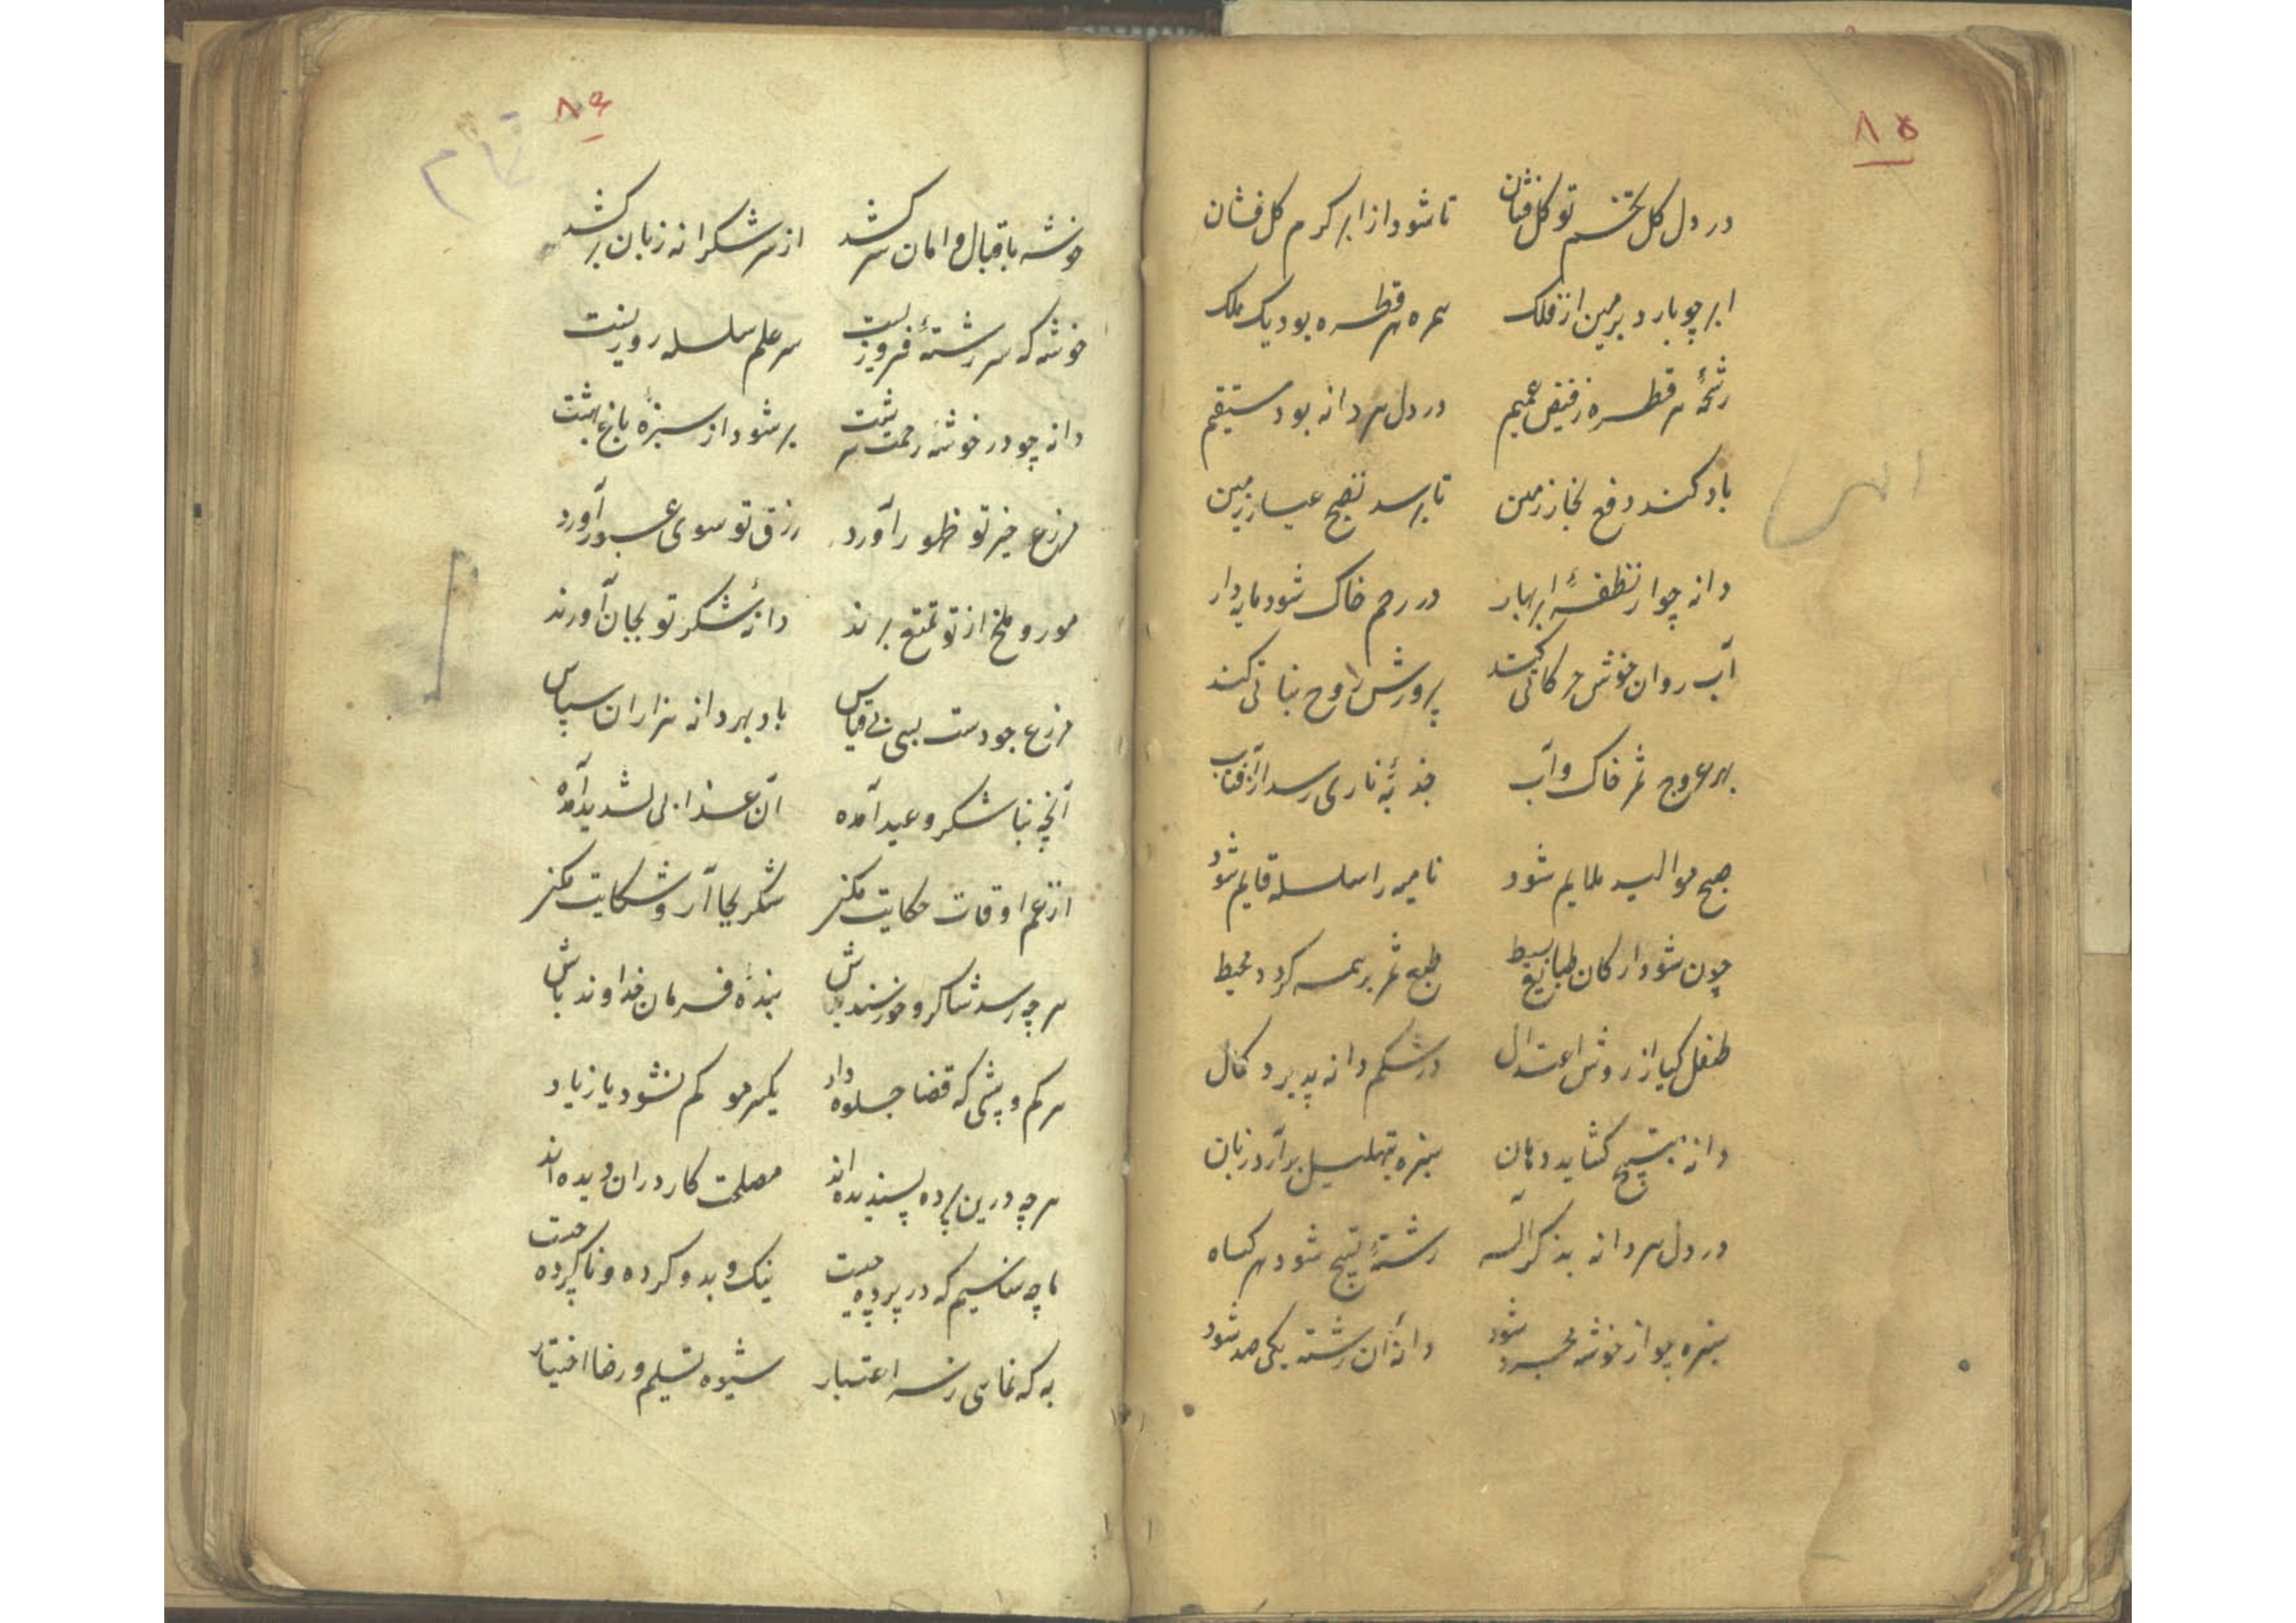 ۸۵
در دل گل تخم تو گل فشان تا شود از ابر کرم گل فشان
ابر چو بارد بزمین از فلک همره هر قطره بود یک ملک
رشحهٔ هر قطره ز فیض عمیم در دل هر دانه بود مستقیم
باد کند دفع بخار زمین تا برسد نضج عیار زمین
دانه چو از نطفهٔ ابر بهار در رحم خاک شود مایه دار
آب روان خوش حرکاتی کند پرورش روح نباتی کند
بهر عروج ثمر خاک و آب جذبهٔ ناری رسد از آفتاب
صبح موالید ملایم شود نامیه را سلسله قایم شود
چون شود ارکان طبایع بسیط طبع ثمر بر همه گردد محیط
طفل گیا از روش اعتدال در شکم دانه پذیرد کمال
دانه بتسبیح گشاید دهان سبزه بتهلیل برآرد زبان
در دل هر دانه بذکر اله رشتهٔ تسبیح شود هر گیاه
سبزه چو از خوشه مجرد شود دانهٔ آن رشته یکی صد شود
۸۶
تمام
خوشه باقبال و امان سر کشد از سر شکرانه زبان بر کشد
خوشه که سر رشتهٔ فروزیست سر علم سلسله روزیست
دانه چو در خوشهٔ رحمت سرشت بر شود از سبزهٔ باغ بهشت
مزرع خیر تو ظهور آورد رزق تو سوی عبور آورد
مور و ملخ از تو تمتع برند دانهٔ شکر تو بجان آورند
مزرع جودست بسی بی قیاس باد بهر دانه هزاران سپاس
آنچه بناشکر وعید آمده ان عذابی لشدید آمده
از غم اوقات حکایت مکن شکر بجا آر و شکایت مکن
هر چه رسد شاکر و خورسند باش بندهٔ فرمان خداوند باش
هر کم و بیشی که قضا جلوه داد یکسر مو کم نشود یا زیاد
هر چه درین پرده پسندیده اند مصلحت کار در آن دیده اند
ما چه شناسیم که در پرده چیست نیک و بد و کرده و ناکرده چیست
به که نمایی ز سر اعتبار شیوه تسلیم و رضا اختیار